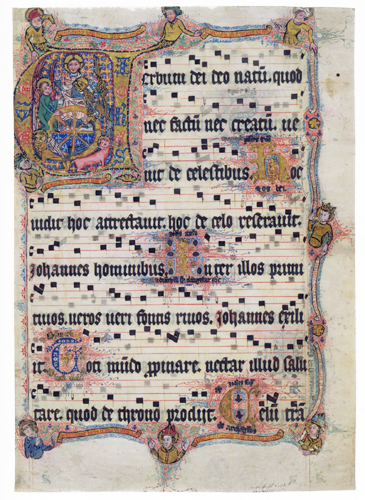 Verbum dei deo natū. quod
nec factū nec creatū. ue
nit de celestibus. Hoc
uidit hoc attrectauit. hoc de celo reserauit.
Johannes hominibus. Inter illos primi
tiuos. ueros ueri fontis riuos. Johannes exili
it Toti mūdo ꝓpinare. nectar illud salu
tare. quod de throno prodijt. Celū trā